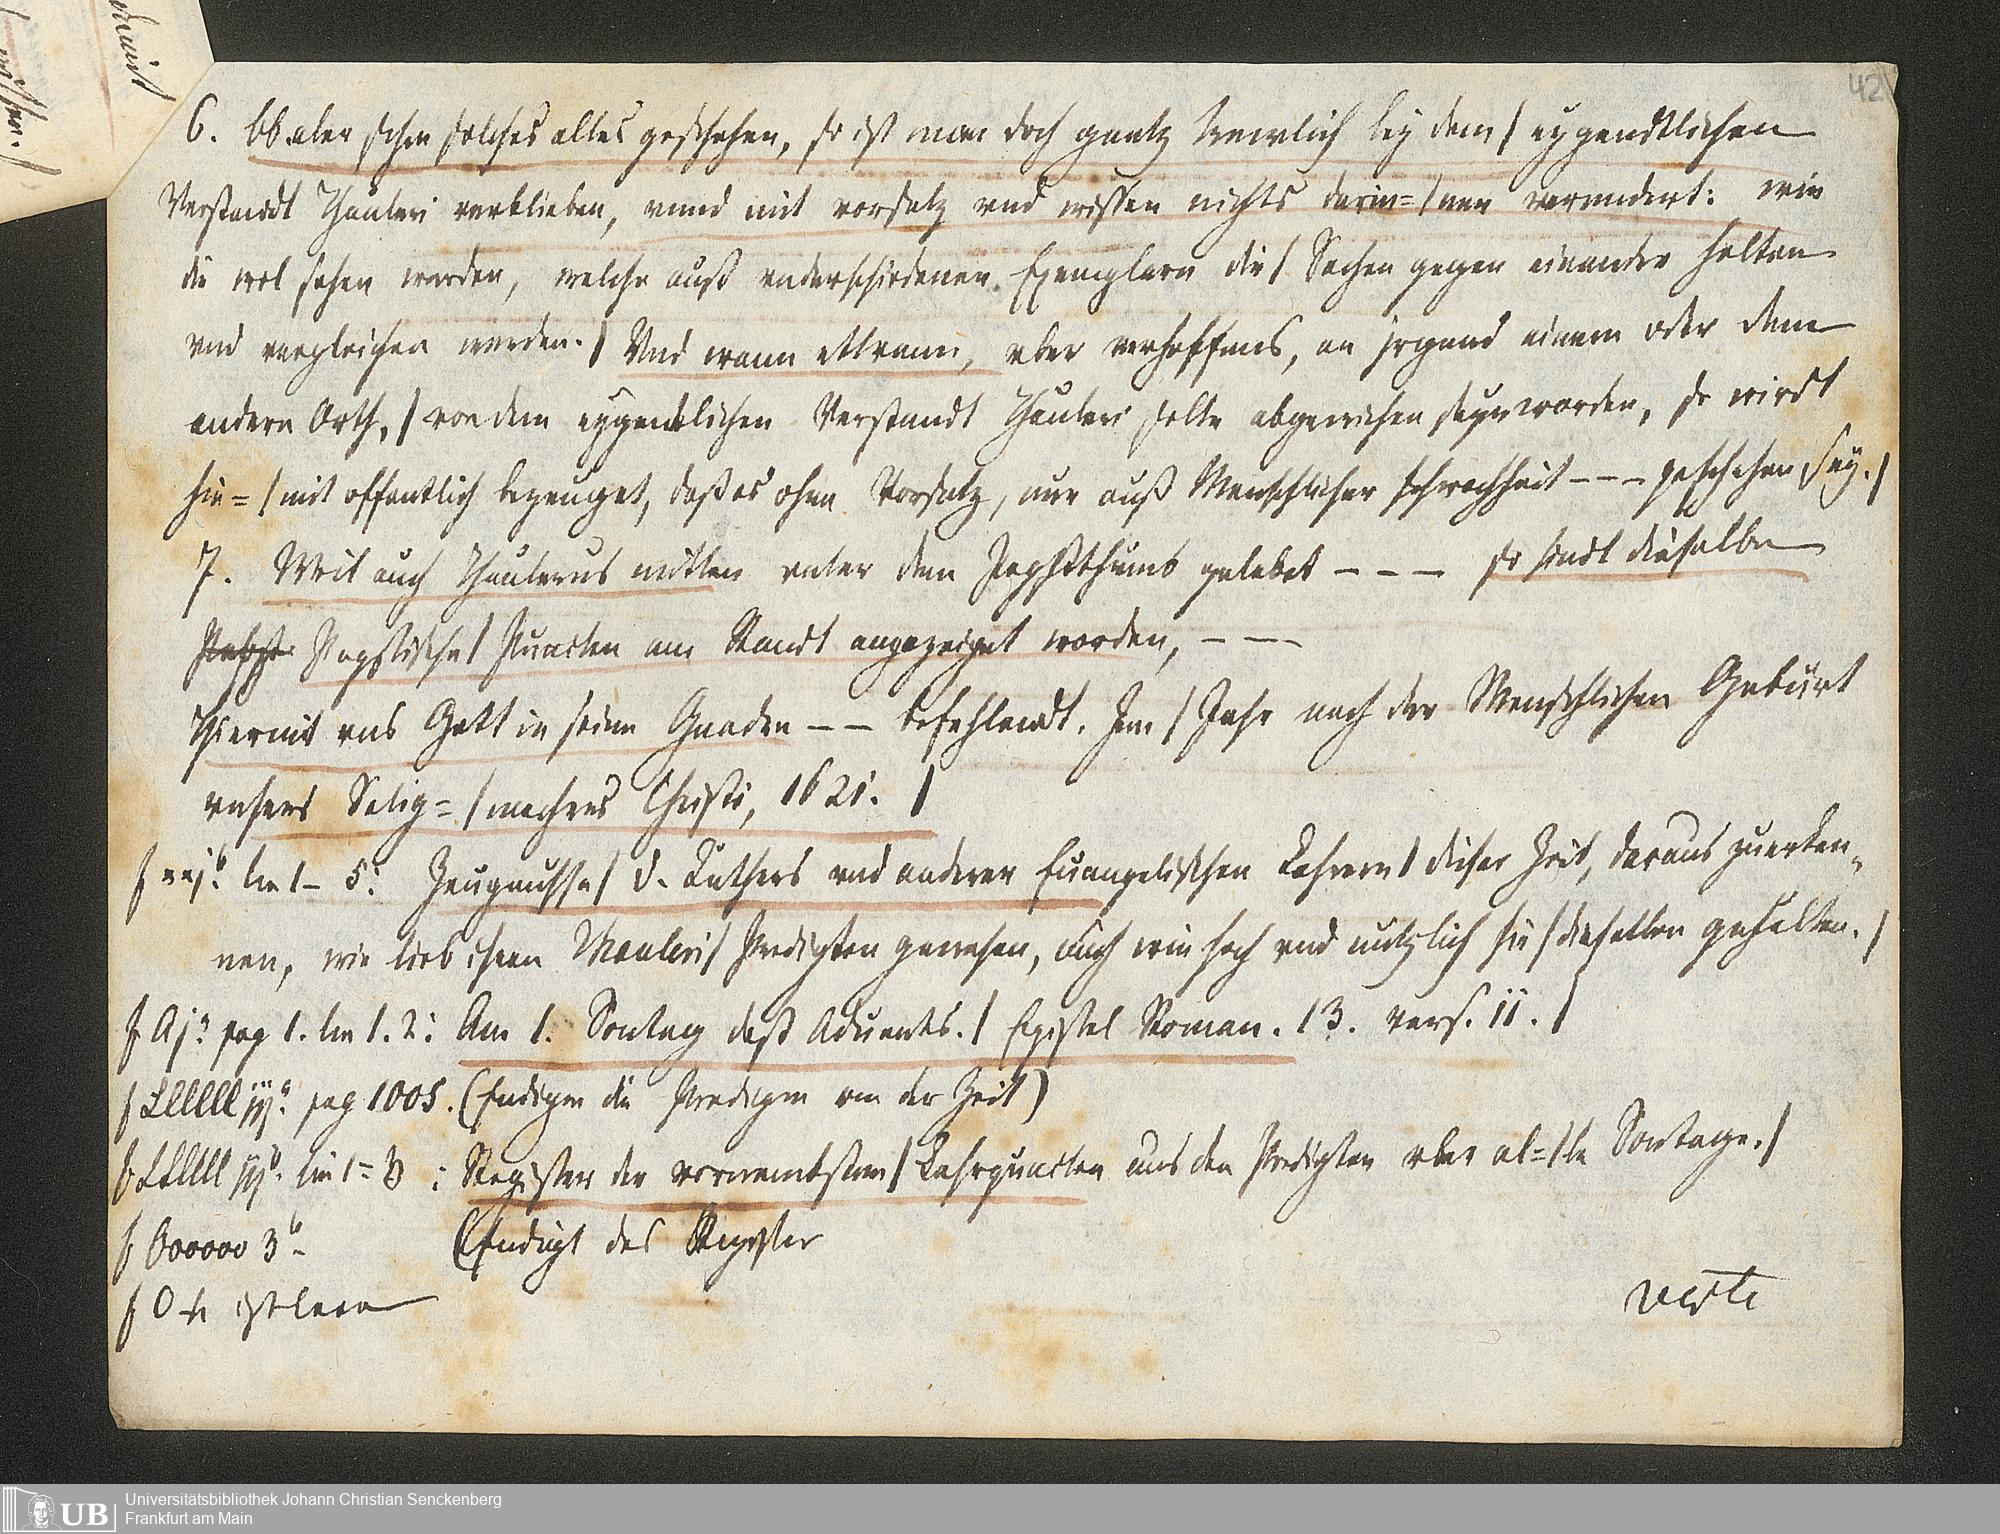 42
6. Ob aber schon solches alles geschehen, so ist man doch gantz trewlich bey dem / eygendtlichen
Verstandt Thauleri verblieben, vnnd mit vorsatz vnd wissen nichts darin= / nen verendert: wie
die wol sehen werden, welche auß vnderschiedenen Exemplarn die / Sachen gegen einander halten
vnd vergleichen werden. / Vnd wann ettwann, vber verhoffens, an jrgend einem oder dem
andern Orth, / von dem eygendtlichen Verstandt Thauleri solte abgewichen seyn worden, so wirdt
hie= / mit offentlich bezeuget, daß es ohne Vorsatz, nur auß Menschlicher schwachheit - - - geschehen sey. /
7. Weil auch Thaulerus mitten vnter dem Papstthumb gelebet - - - so sindt dieselbe
Päpstische / Puncten am Randt angezeiget worden, - - -
Hiermit vns Gott in seine Gnaden - - befehlendt. Im / Jahr nach der Menschlichen Geburt
vnsers Selig= / machers Christi, 1621. /
lin 1 - 5: Zeugnusse / D. Luthers vnd anderer Euangelischen Lehrern / dieser Zeit, daraus zuerken-
nen, wie lieb ihnen Thauleri / Predigten gewesen, auch wie hoch vnd nützlich sie / dieselben gehalten. /
f Aja pag 1. lin 1. 2: Am 1. Sontag deß Aduents. / Epistel Roman. 13. vers. 11. /
f Llllll iija pag 1005. (Endigen die Predigen von der Zeit)
f Llllll iijb lin 1 - 3 : Register der vornembsten / Lehrpuncten aus den Predigten vber al= / le Sontage. /
f Oooooo 3b (Endigt das Register
f O 4 ist leer
verte
Universitätsbibliothek Johann Christian Senckenberg
Frankfurt am Main
UB